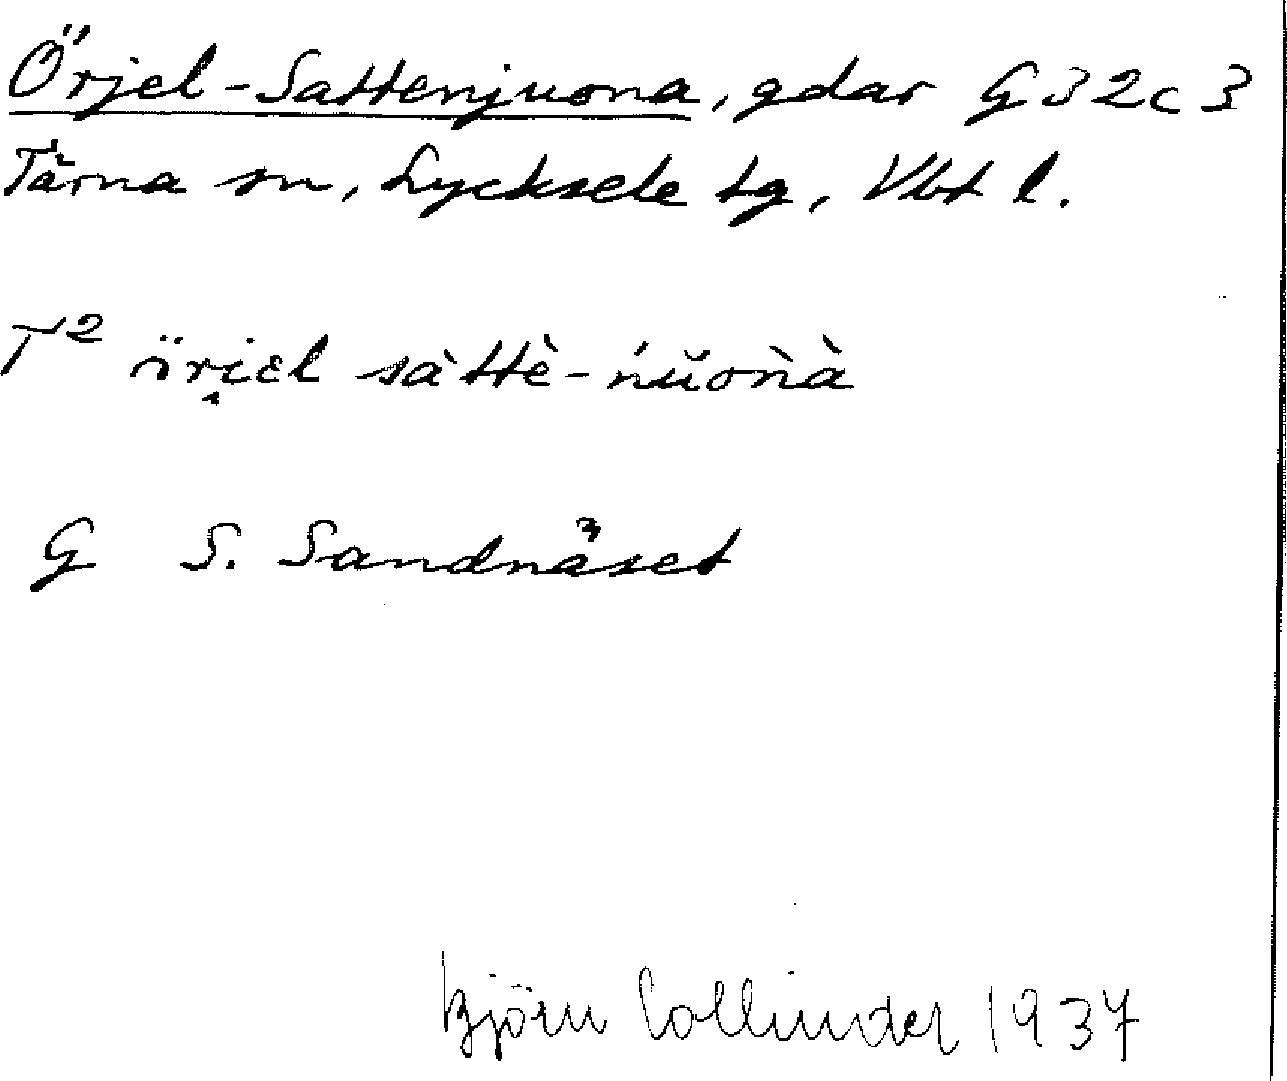 Örjel-Sattenjuona, gdar G32c3
Tärna sn, Lycksele tg, Vbt l.
T² örjɛl sàttè-ńŭoǹà
G S. Sandnäset
Björn Collinder 1937